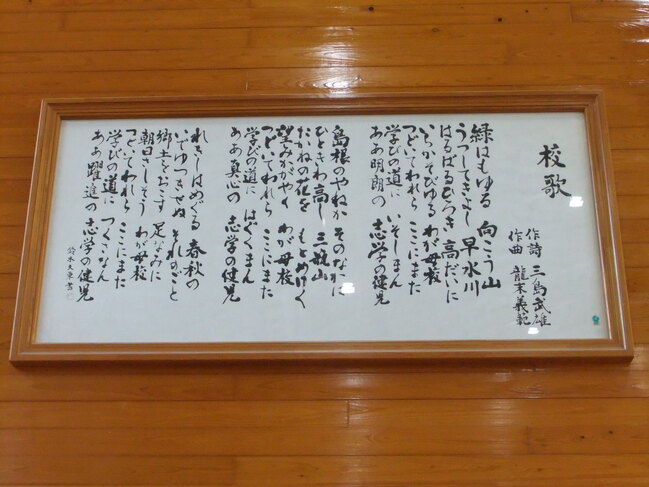 校歌
作詩 三島武雄
作曲 龍末義範
緑はもゆる 向こう山
うつしてきよし 早水川
はるばるとつづき 高だいに
いらかそびゆる わが母校
つどいてわれら ここにまた
学びの道に いそしまん
ああ明朗の 志学の健児
島根のやねか そのなかに
ひときわ高し 三瓶山
たかねの花を もとめゆく
望みかがやく わが母校
つどいてわれら ここにまた
学びの道に はげまん
ああ真心の 志学の健児
れきしはめぐる 春秋の
いでゆつきせぬ それのごと
郷土をおこす 足なみに
朝日さしそう わが母校
つどいてわれら ここにまた
学びの道に つくさなん
ああ躍進の 志学の健児